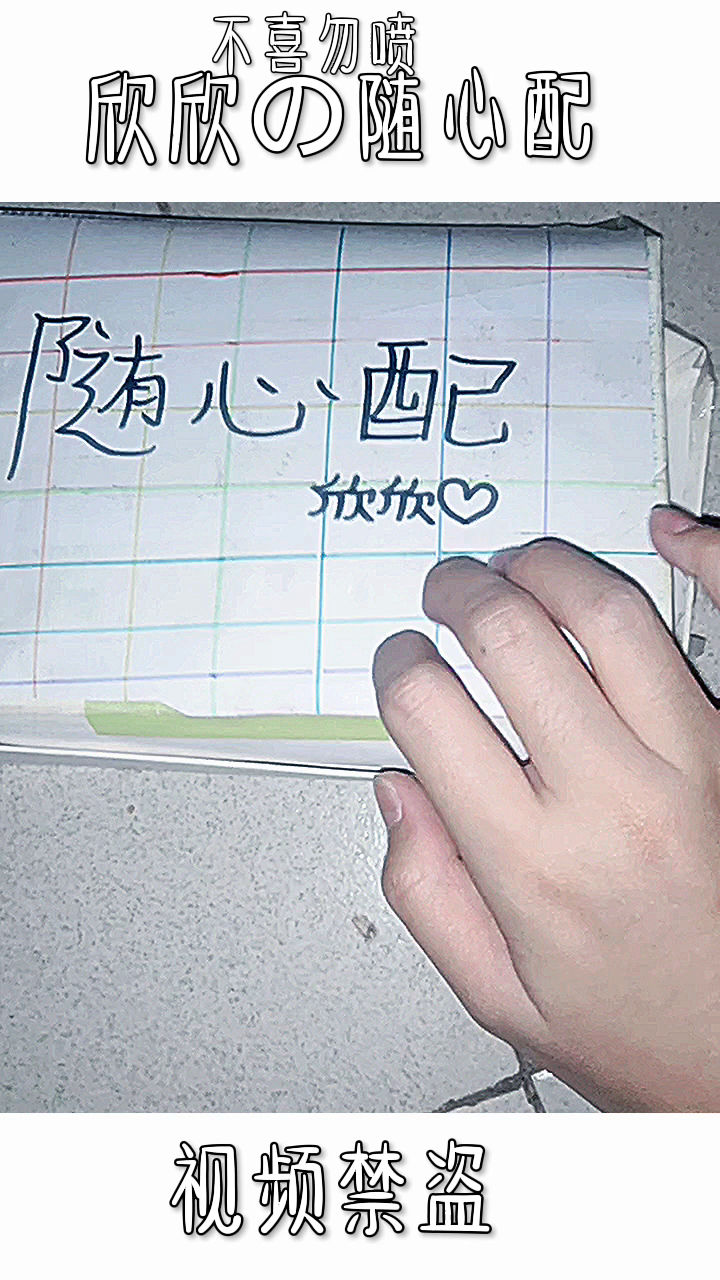 不喜勿喷
欣欣の随心配
随心配
欣欣♡
视频禁盗